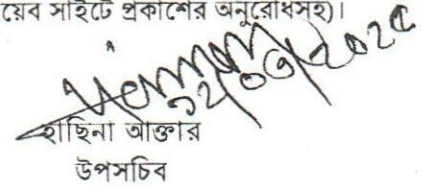 য়েব সাইটে প্রকাশের অনুরোধসহ)।
হাছিনা আক্তার
উপসচিব